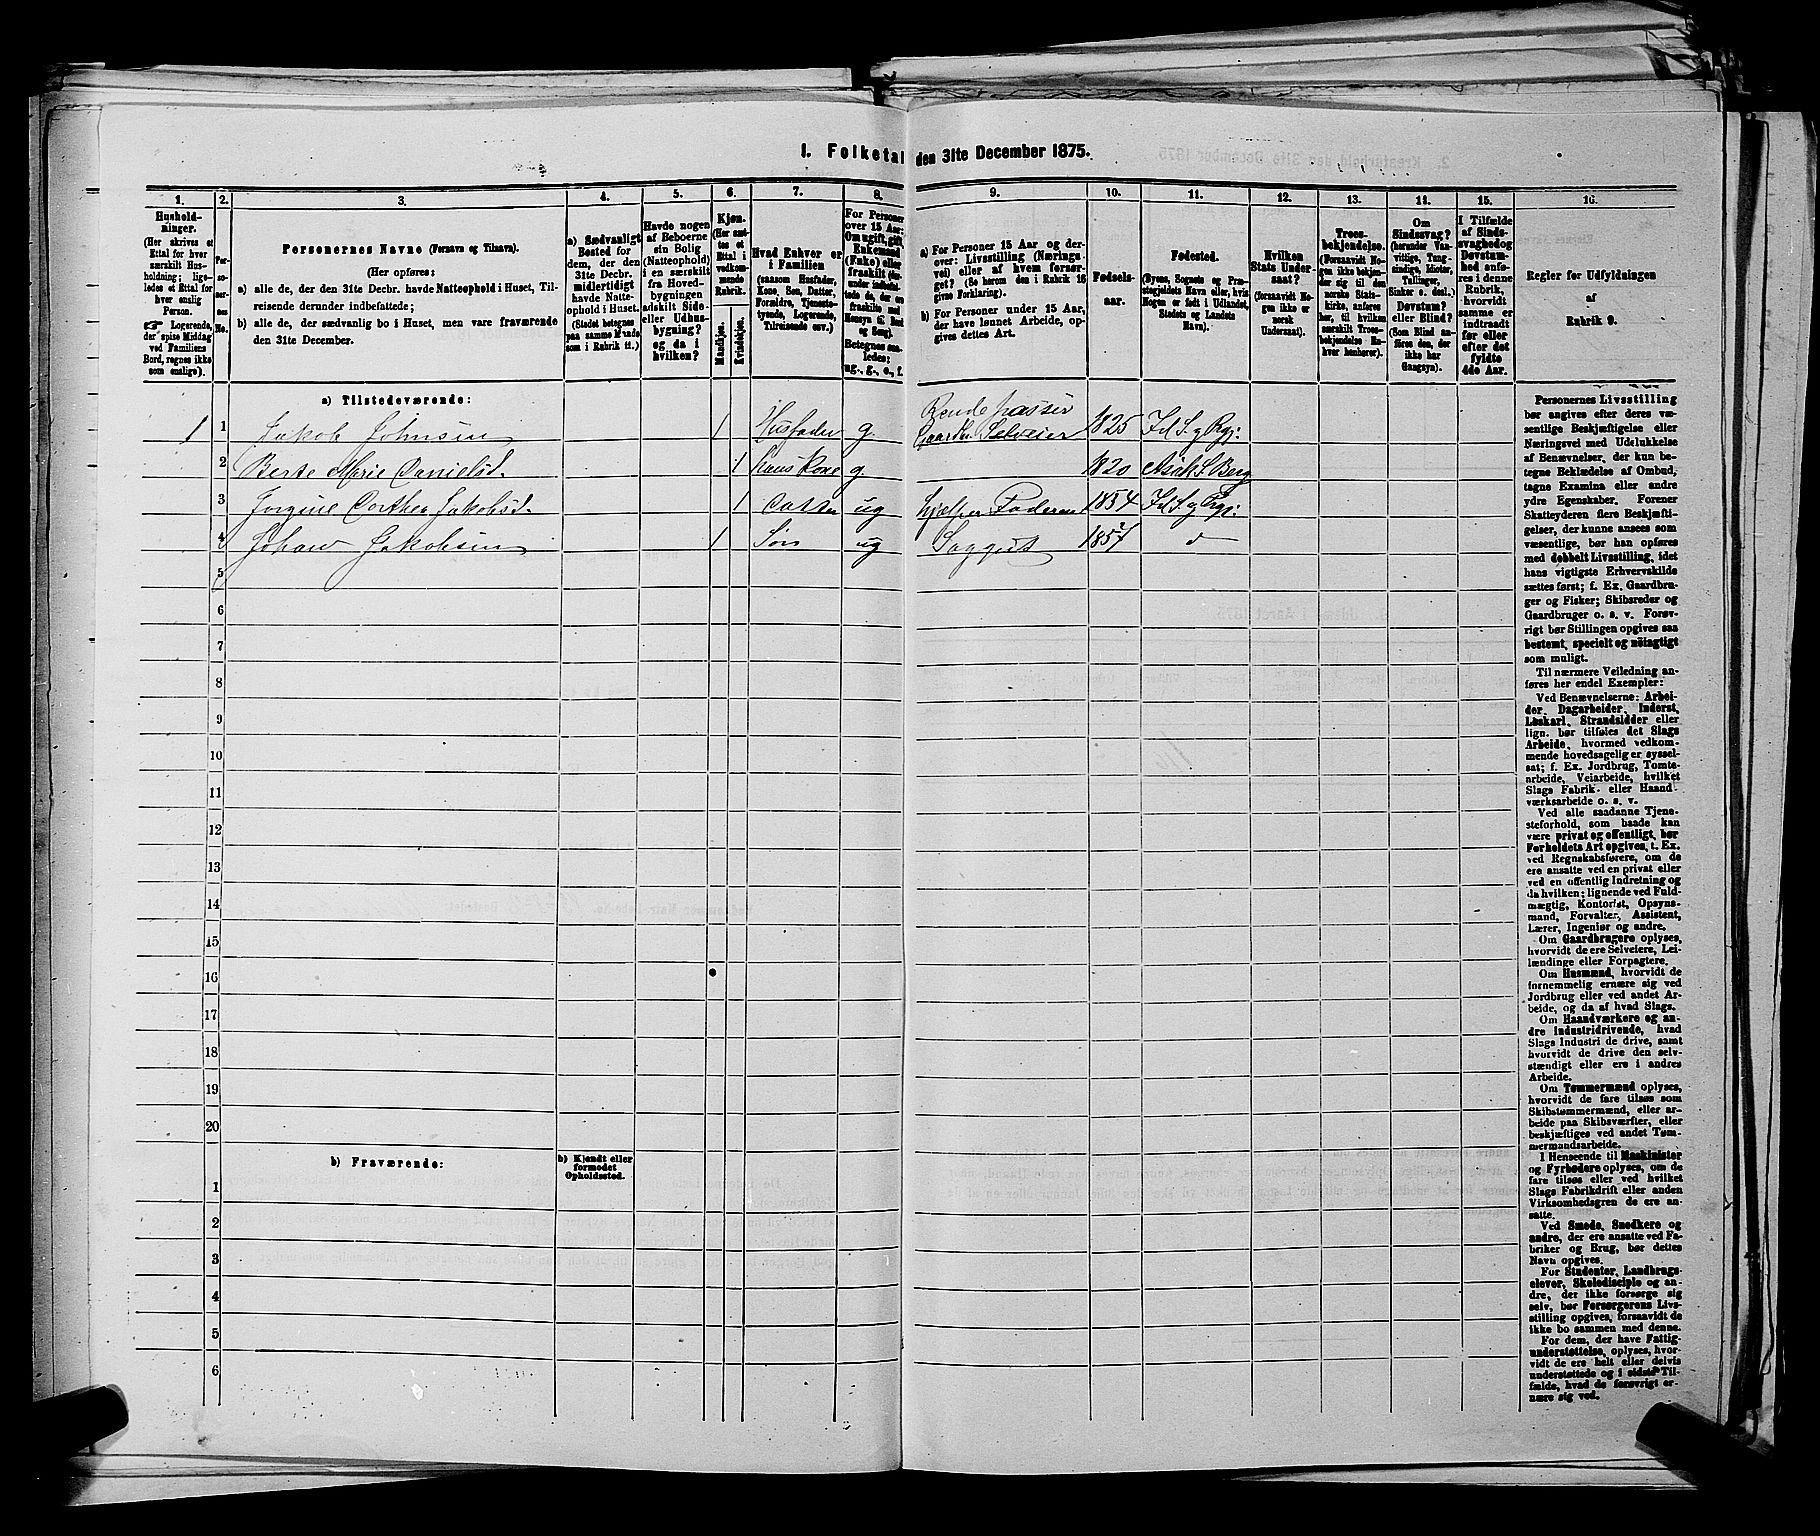 1. Folketal den 31te December 1875.
1. 2. 3. 4. 5. 6. 7. 8. 9. 10. 11. 12. 13. 14. 15. 16.
Hushold-
ninger.
(Her skrives et
Ettal for hver
særskilt Hus-
holdning; lige-
ledes et Ettal for
hver enslig
Person.
☞ Logerende,
der spise Middag
ved Familiens
Bord, regnes ikke
som enslige).
Per-
so-
ner-
nes
No.
Personernes Navne (Fornavn og Tilnavn).
(Her opføres:
a) alle de, der den 31te Decbr. havde Natteophold i Huset, Til-
reisende derunder indbefattede;
b) alle de, der sædvanlig bo i Huset, men vare fraværende
den 31te December.
a) Sædvanligt
Bosted for
dem, der den
31te Decbr.
midlertidigt
havde Natte-
ophold i Huset.
(Stedet betegnes
paa samme Maade
som i Rubrik 11.)
Havde nogen
af Beboerne
sin Bolig
(Natteophold)
i en særskilt
fra Hoved-
bygningen
adskilt Side-
eller Udhus-
bygning?
og da i
hvilken?
Kjøn.
(Her sæt-
tes et
Ettal i
vedkom-
mende
Rubrik.
Mandkjøn.
Kvindekjøn.
Hvad Enhver er
i Familien
(saasom Husfader,
Kone, Søn, Datter,
Forældre, Tjeneste-
tyende, Logerende,
Tilreisende osv.)
For Personer
over 15 Aar:
Om ugift, gift,
Enkemand
(Enke) eller
fraskilt
Betegnes saa-
ledes:
ug., g., e., f.
a) For Personer 15 Aar og der-
over: Livsstilling (Nærings-
vei) eller af hvem forsør-
get? (Se herom den i Rubrik 16
givne Forklaring).
b) For Personer under 15 Aar,
der have lønnet Arbeide, op-
gives dettes Art.
Fødsels-
aar.
Fødested.
(Byens, Sognets og Præ-
stegjeldets Navn eller, hvis
Nogen er født i Udlandet,
Stedets og Landets
Navn).
Hvilken
Stats Under-
saat?
(forsaavidt No-
gen ikke er
norsk
Undersaat).
Troes-
bekjendelse.
(Forsaavidt No-
gen ikke bekjen-
der sig til den
norske Stats-
kirke, anføres
her, til hvilken
særskilt Troes-
bekjendelse En-
hver henhører).
Om
Sindssvag?
(herunder Van-
vittige, Tung-
sindige, Idioter,
Tullinger,
Sinker o. desl.)
Døvstum?
eller Blind?
(Som Blind an-
føres den, der
ikke har
Gangsyn).
I Tilfælde
af Sinds-
svaghed og
Døvstum-
hed anfø-
res i denne
Rubrik,
hvorvidt
samme er
indtraadt
før eller
efter det
fyldte
4de Aar.
Regler for Udfyldningen
af
Rubrik 9.
a) Tilstedeværende:
1 1 Jakob Johnsen 1 Husfader g. Gaardbr. Selveier 1825 Id S. og Pgj.
2 Berte Marie Danielsd. 1 Hans Kone g 1820 Asak S Berg
3 Jorgine Dorthea Jakobsd. 1 Datter ug hjelper Faderen 1854 Id S. og Pgj.
4 Johan Jakobsen 1 Søn ug 1857 do
5
6
7
8
9
10
11
12
13
14
15
16
17
18
19
20
b) Fraværende:
b) Kjendt eller
formodet
Opholdssted.
1
2
3
4
5
6
Personernes Livsstilling
bør angives efter deres væ-
sentlige Beskjæftigelse eller
Næringsvei med Udelukkelse
af Benævnelser, der kun be-
tegne Beklædelse af Ombud,
tagne Examina eller andre
ydre Egenskaber. Forener
Skatteyderen flere Beskjæfti-
gelser, der kunne ansees som
væsentlige, bør han opføres
med dobbelt Livsstilling, idet
hans vigtigste Erhvervskilde
sættes først; f. Ex. Gaardbru-
ger og Fisker; Skibsreder og
Gaardbruger o. s. v. Forøv-
rigt bør Stillingen opgives saa
bestemt, specielt og nøiagtigt
som muligt.
Til nærmere Veiledning an-
føres her endel Exempler:
Ved Benævnelserne: Arbei-
der, Dagarbeider, Inderst,
Løskarl, Strandsidder eller
lign. bør tilføies det Slags
Arbeide, hvormed vedkom-
mende hovedsagelig er syssel-
sat; f. Ex. Jordbrug, Tomte-
arbeide, Veiarbeide, hvilket
Slags Fabrik- eller Haand-
værksarbeide o. s. v.
Ved alle saadanne Tjene-
steforhold, som baade kan
være privat og offentligt, bør
Forholdets Art opgives, t. Ex.
ved Regnskabsførere, om de
ere ansatte ved en privat eller
ved en offentlig Indretning og
da hvilken; lignende ved Fuld-
mægtig, Kontorist, Opsyns-
mand, Forvalter, Assistent,
Lærer, Ingeniør og andre.
Om Gaardbrugere oplyses,
hvorvidt de ere Selveiere, Lei-
lændinge eller Forpagtere.
Om Husmænd, hvorvidt de
fornemmelig ernære sig ved
Jordbrug eller ved andet Ar-
beide, og da af hvad Slags.
Om Haandværkere og an-
dre Industridrivende, hvad
Slags Industri de drive, samt
hvorvidt de drive den selv-
stændigt eller ere i andres
Arbeide.
Om Tømmermænd oplyses,
hvorvidt de fare tilsøs som
Skibstømmermænd, eller ar-
beide paa Skibsværfter, eller
beskjæftiges ved andet Tøm-
mermandsarbeide.
I Henseende til Maskinister
og Fyrbødere oplyses, om de
fare tilsøs eller ved hvilket
Slags Fabrikdrift eller anden
Virksomhedsgren de ere an-
satte.
Ved Smede, Snedkere og
andre, der ere ansatte ved Fa-
briker og Brug, bør dettes
Navn opgives.
For Studenter, Landbrugs-
elever, Skoledisciple og an-
dre, der ikke forsørge sig
selv, bør Forsørgerens Livs-
stilling opgives, forsaavidt de
ikke bo sammen med denne.
For dem, der have Fattig-
understøttelse, oplyses, hvor-
vidt de ere helt eller delvis
understøttede og i sidste Til-
fælde, hvad de forøvrigt er-
nære sig ved.